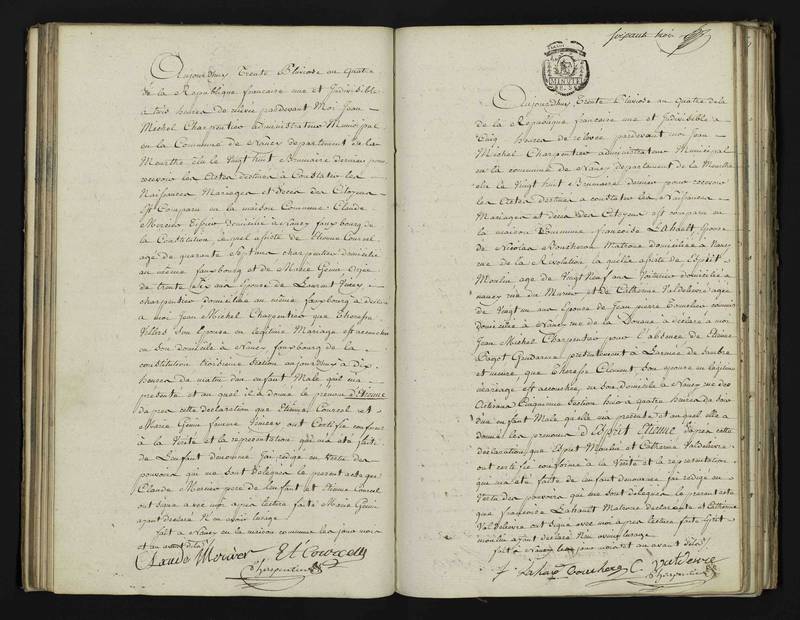 Aujourdhuy Trente Pluviose an quatre
de la Republique francaise une et Indivisible
à trois heures de relevée pardevant Moi Jean
Michel Charpentier administrateur Municipal
en la Commune de Nancy departement de la
Meurthe Elu le vingt huit Brumaire dernier pour
recevoir les Actes destinés à Constater les
Naissances Mariages et Deces des Citoyens
est Comparu en la maison Commune Claude
Mercier domicilié à Nancy fauxbourg de
la Constitution lequel assisté de Etienne Courcel
agé de quarante Sept ans charpentier domicilié
au même fauxbourg et de Marie Genin agée
de trente ans Epouse de Laurent
charpentier domiciliée au même fauxbourg a déclaré
a moi Jean Michel Charpentier que Therese
Villers Son Epouse en legitime Mariage est accouchée
en Son domicile à Nancy fauxbourg de la
constitution troisieme Section aujourdhuy à Dix
heures du matin d'un enfant Male qu'il m'a
presenté et auquel il a donné le prenom d'Etienne
dapres cette déclaration que Etienne Courcel et
Marie Genin femme ont Certifié conforme
à la Verité et la representation qui m'a été faite
de l'enfant denommé jai redigé en vertu des
pouvoirs qui me Sont délégués le present acte que
Claude Mercier pere de l'enfant et Etienne Courcel
ont Signé avec moi apres lecture faite Marie Genin
ayant declaré N'en avoir lusage
fait à Nancy en la maison commune les jour mois
et an avant dits
Claude Mercier Et Courcelle
Charpentier
soixante trois
MINUTE
Aujourdhuy Trente Pluviose an Quatre de la
de la Republique francaise une et Indivisible à
Cinq heures de relevée pardevant moi Jean
Michel Charpentier administrateur Municipal
en la commune de Nancy departement de la Meurthe
elu le Vingt huit Brumaire dernier pour recevoir
les Actes Destinés a constater les Naissances
Mariages et deces des Citoyens est comparue en
la maison Commune francoise Lahault Epouse
de Nicolas Bourcheron Matrone domiciliée à Nancy
rue de la Revolution laquelle assistée de Esprit
Moulin agé de Vingt Neuf ans Voiturier domicilié a
nancy rue du Marin et de Catherine Valdelievre agée
de Vingt un ans Epouse de Jean pierre commis
domiciliée à Nancy rue de la Douane à déclaré a moi
Jean Michel Charpentier pour l'absence de Etienne
Pagot Gendarme presentement à Larmée de Sambre
et meuse que Therese Clement Son epouse en legitime
mariage est accouchée en Son Domicile à Nancy rue des
Cinquieme Section hier à quatre heures du soir
d'un enfant Male qu'elle m'a presenté et auquel elle a
donné les prenoms d'Esprit Etienne dapres cette
declaration que Esprit Moulin et Catherine Valdelievre
ont certifié conforme à la Verité et la representation
qui m'a été faite de l'enfant denommé jai redigé en
Vertu des pouvoirs qui me sont délégués le present acte
que francoise Lahault Matrone declarante et Catherine
Valdelievre ont Signé avec moi apres lecture faite Esprit
moulin ayant déclaré N'en avoir lusage
fait à Nancy les jour mois et an avant dits
f Lahaut Bourcheron C. Valdelievre
Charpentier